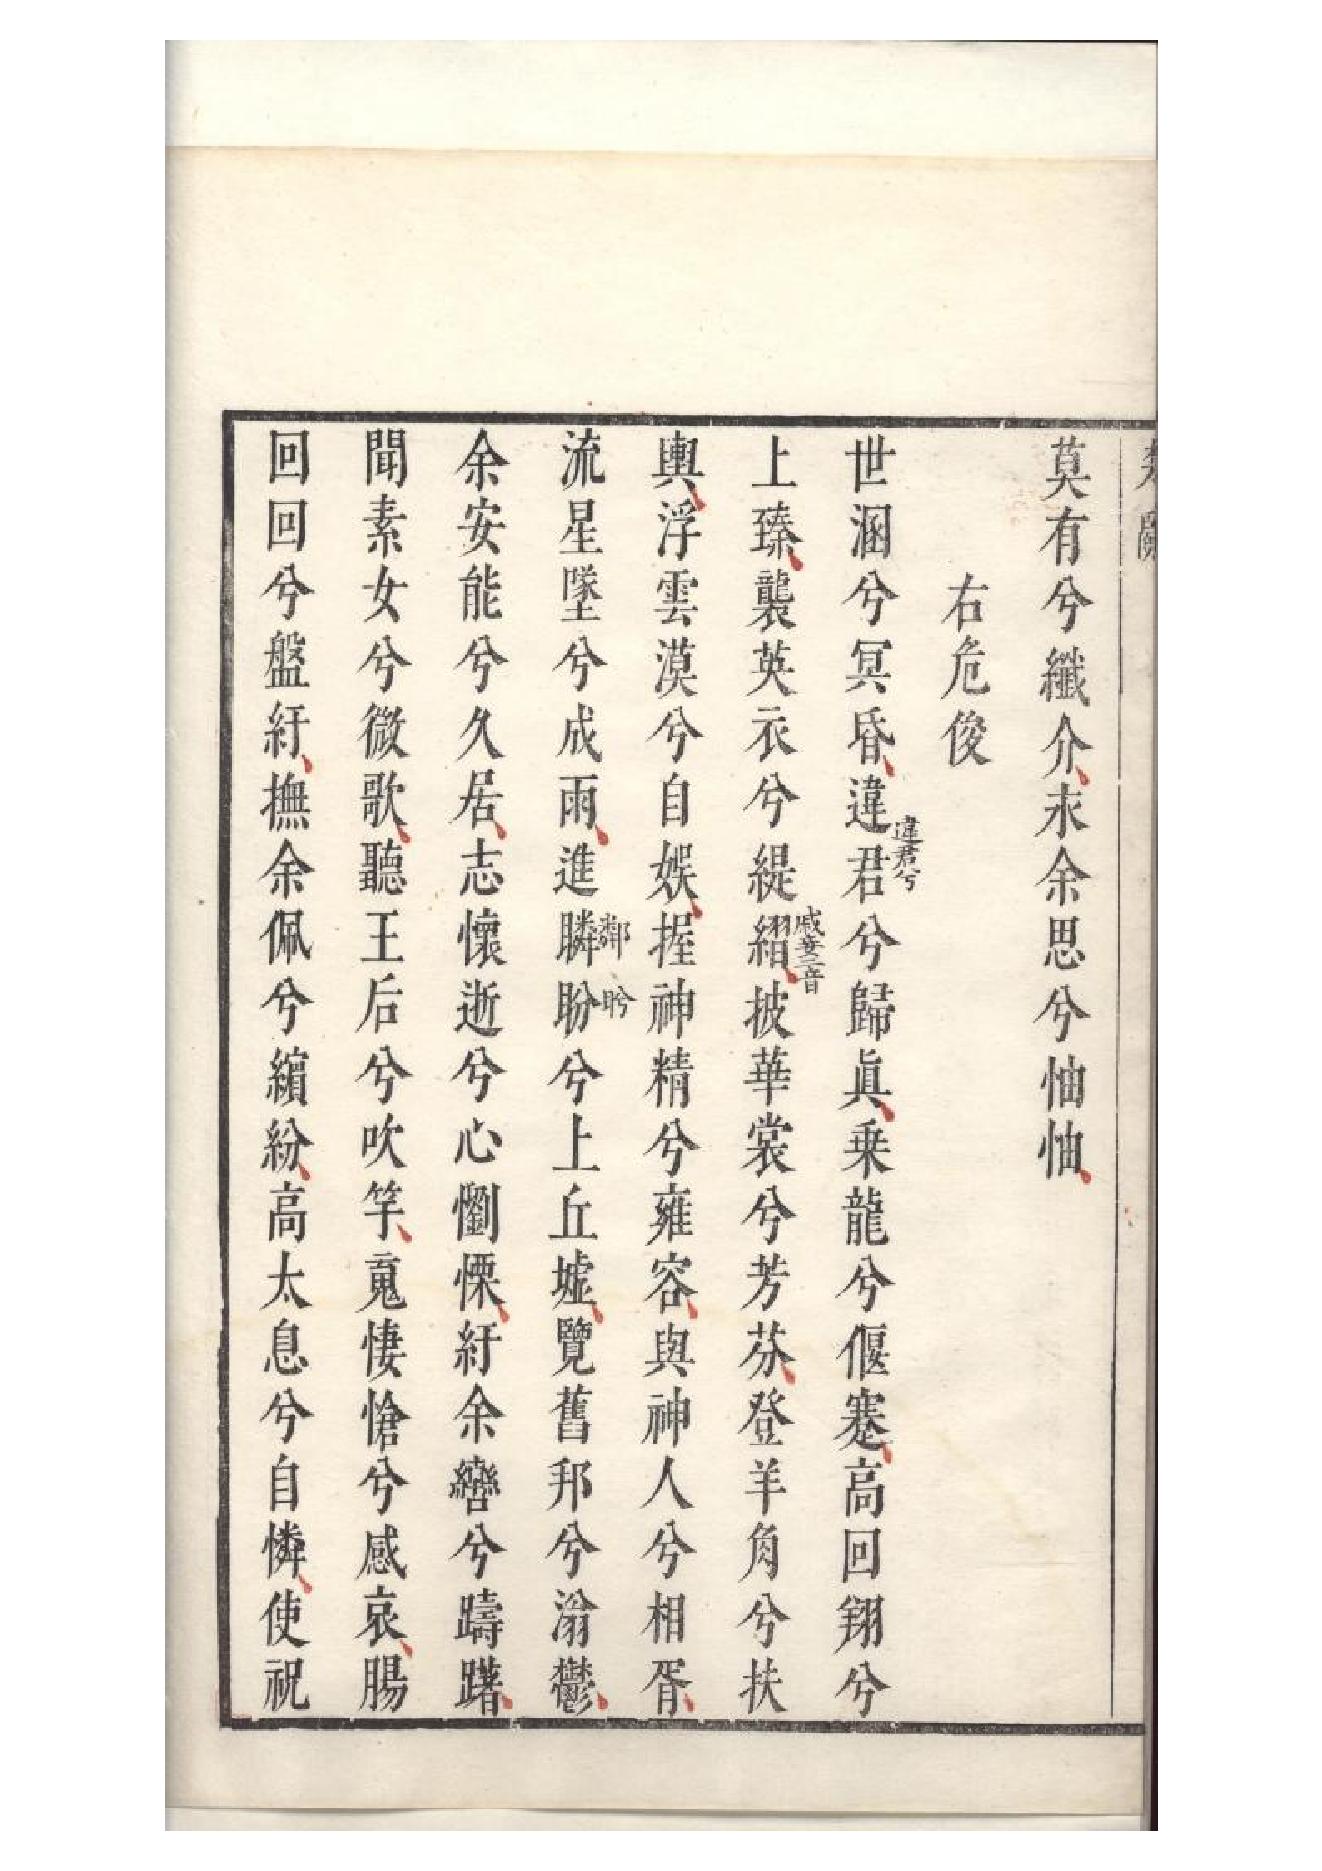 莫有兮纎介永余思兮怞怞
右危俊
世溷兮冥昏違君兮歸眞乗龍兮偃蹇高回翔兮
違君兮
上臻襲英衣兮緹䌌披華裳兮芳芬登羊角兮扶
音
輿浮雲漠兮自娛握神精兮雍容與神人兮相胥
流星墜兮成雨進瞵盼兮上丘墟覽舊邦兮滃鬱
鄰 盻
余安能兮久居志懷逝兮心懰慄紆余轡兮躊躇
聞素女兮微歌聽王后兮吹竽䰟悽愴兮感哀腸
回回兮盤紆撫余佩兮繽紛高太息兮自憐使祝